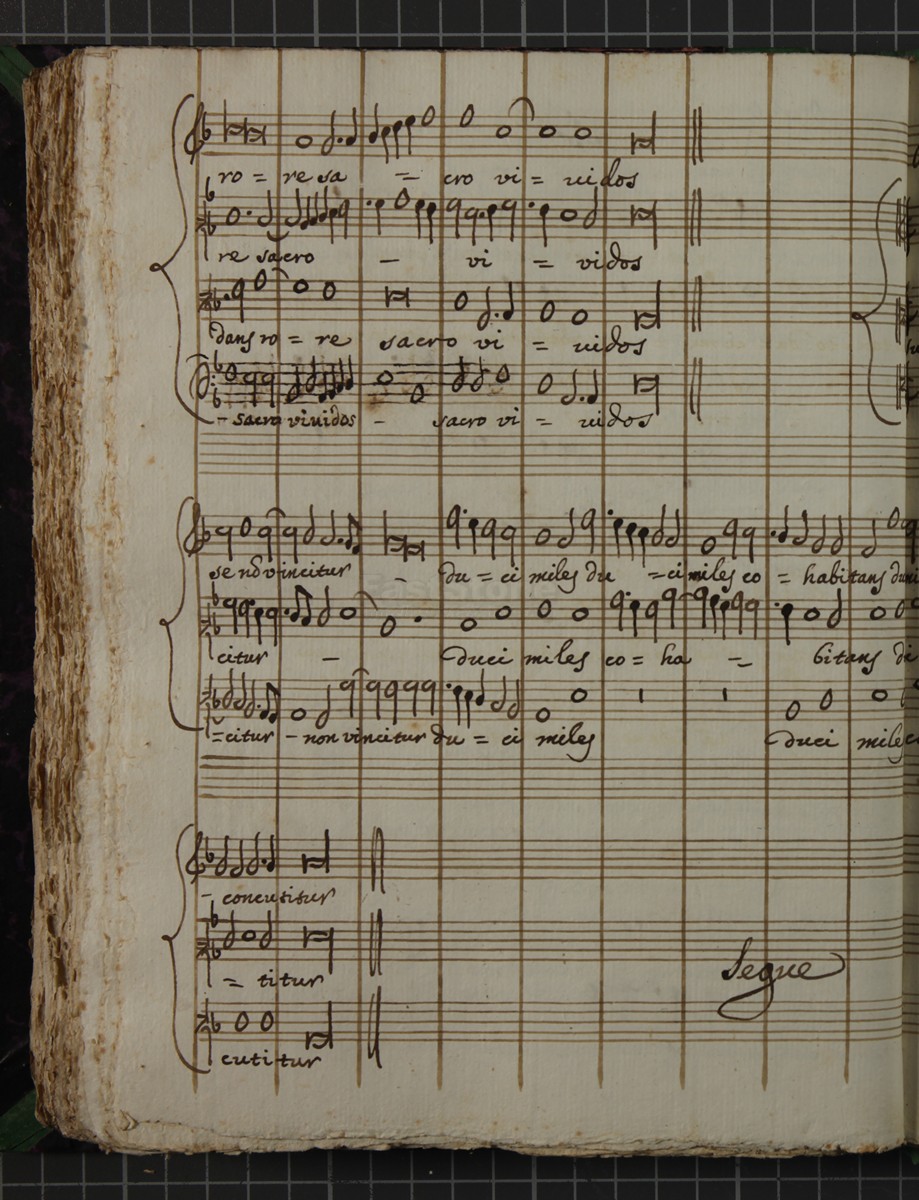 ro = re sa = cro vi = uidos
re sacro - vi = vidos
dans ro = re sacro vi = uidos
- sacro viuidos - sacro vi = uidos
se nō vincitur - du = ci miles du = ci miles co = habitans duci
citur - duci miles co = ha = bitans
= citur - non vincitur du = ci miles duci miles
- concutitur
= titur
Segue
cutitur